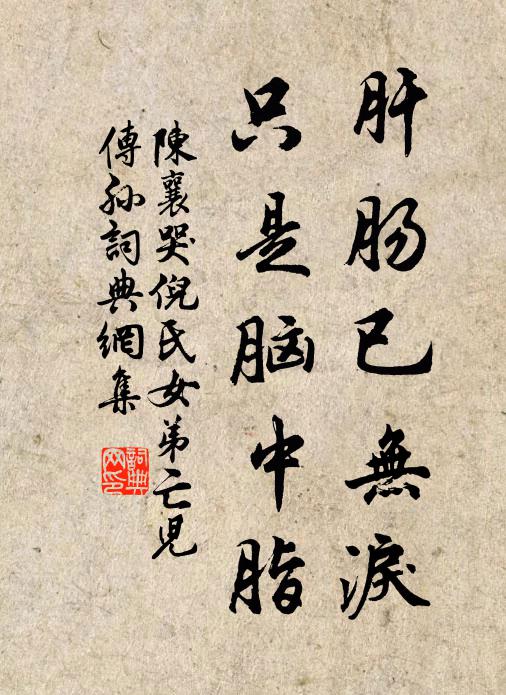 肝肠已無淚
只是脑中脂
陳襄哭倪氏女弟亡児
傳孙詞典網集
詞典网印